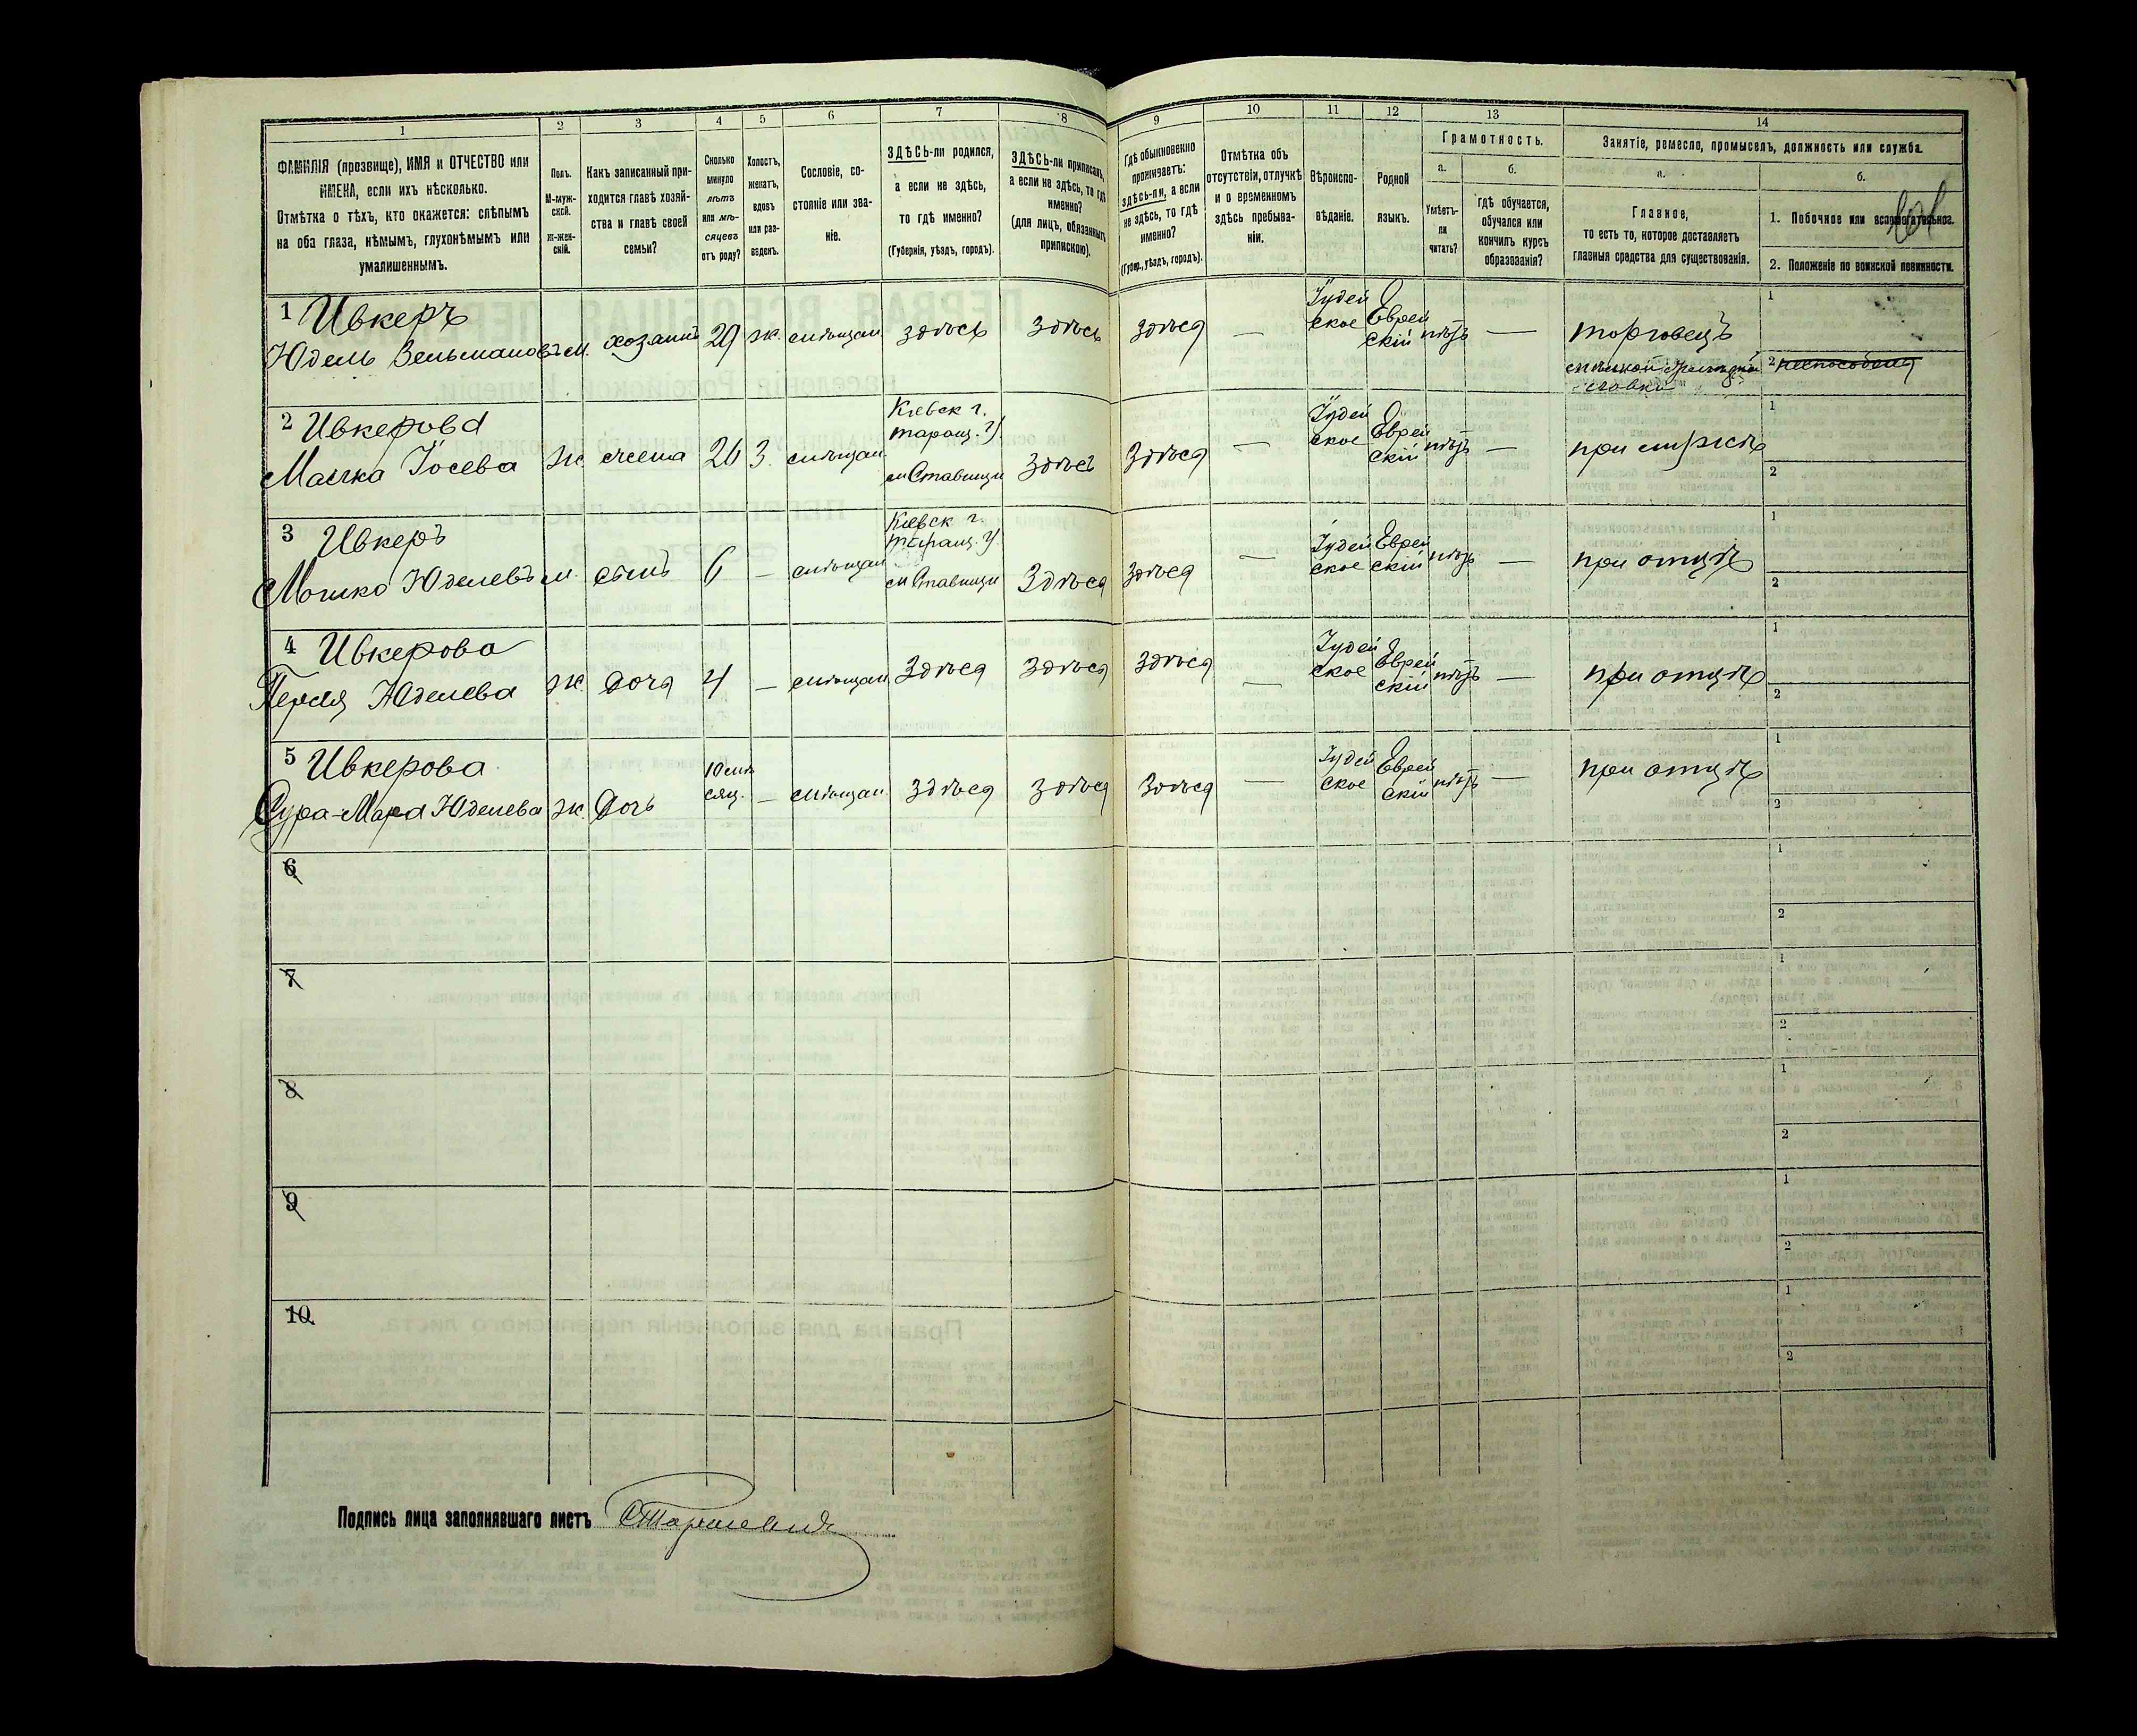 1 2 3 4 5 6 7 8 9 10 11 12 13 14
ФАМИЛІЯ (прозвище), ИМЯ и ОТЧЕСТВО или
ИМЕНА, если ихъ нѣсколько.
Отмѣтка о тѣхъ, кто окажется: слѣпымъ
на оба глаза, нѣмымъ, глухонѣмымъ или
умалишеннымъ.
Полъ.
М-муж-
ской.
Ж-жен-
скій.
Какъ записанный при-
ходится главѣ хозяй-
ства и главѣ своей
семьи?
Сколько
минуло
лѣтъ
или мѣ-
сяцевъ
отъ роду?
Холостъ,
женатъ,
вдовъ
или раз-
веденъ.
Сословіе, со-
стояніе или зва-
ніе.
ЗДѢСЬ-ли родился,
а если не здѣсь,
то гдѣ именно?
(Губернія, уѣздъ, городъ).
ЗДѢСЬ-ли приписанъ,
а если не здѣсь, то гдѣ
именно?
(для лицъ, обязанныхъ
припискою).
Гдѣ обыкновенно
проживаетъ:
здѣсь-ли, а если
не здѣсь, то гдѣ
именно?
(Губер., уѣздъ, городъ).
Отмѣтка объ
отсутствіи, отлучкѣ
и о временномъ
здѣсь пребыва-
ніи.
Вѣроиспо-
вѣданіе.
Родной
языкъ.
Грамотность.
а.
Умѣетъ-
ли
читать?
б.
гдѣ обучается,
обучался или
кончилъ курсъ
образованія?
Занятіе, ремесло, промыселъ, должность или служба.
а.
Главное,
то есть то, которое доставляетъ
главныя средства для существованія.
б.
1. Побочное или вспомогательное.
2. Положеніе по воинской повинности.
1 Ивкеръ
Юдель Зельмановъ м. хозяинъ 29 ж. мѣщан здѣсь здѣсь здѣся — Іудей
ское Еврей
скій нѣтъ — торговецъ
1
2 неспособенъ
2 Ивкерова
Малка Іосева ж жена 26 з. мѣщан Кіевск г.
таращ. у.
м Ставищи здѣсь здѣся — Іудей
ское Еврей
скій нѣтъ — при мужѣ
1
2
3 Ивкеръ
Мошко Юделевъ м. сынъ 6 — мѣщан Кіевск г.
таращ. у.
м Ставищи здѣся здѣся — Іудей
ское Еврей
скій нѣтъ — при отцѣ
1
2
4 Ивкерова
Перля Юделева ж. дочя 4 — мѣщан здѣся здѣся здѣся — Іудей
ское Еврей
скій нѣтъ — при отцѣ
1
2
5 Ивкерова
Сура-Мара Юделева ж. дочь 10 мѣ
сяц. — мѣщан здѣся здѣся здѣся — Іудей
ское Еврей
скій нѣтъ — при отцѣ
1
2
6
1
2
7
1
2
8
1
2
9
1
2
10
1
2
Подпись лица заполнявшаго листъ